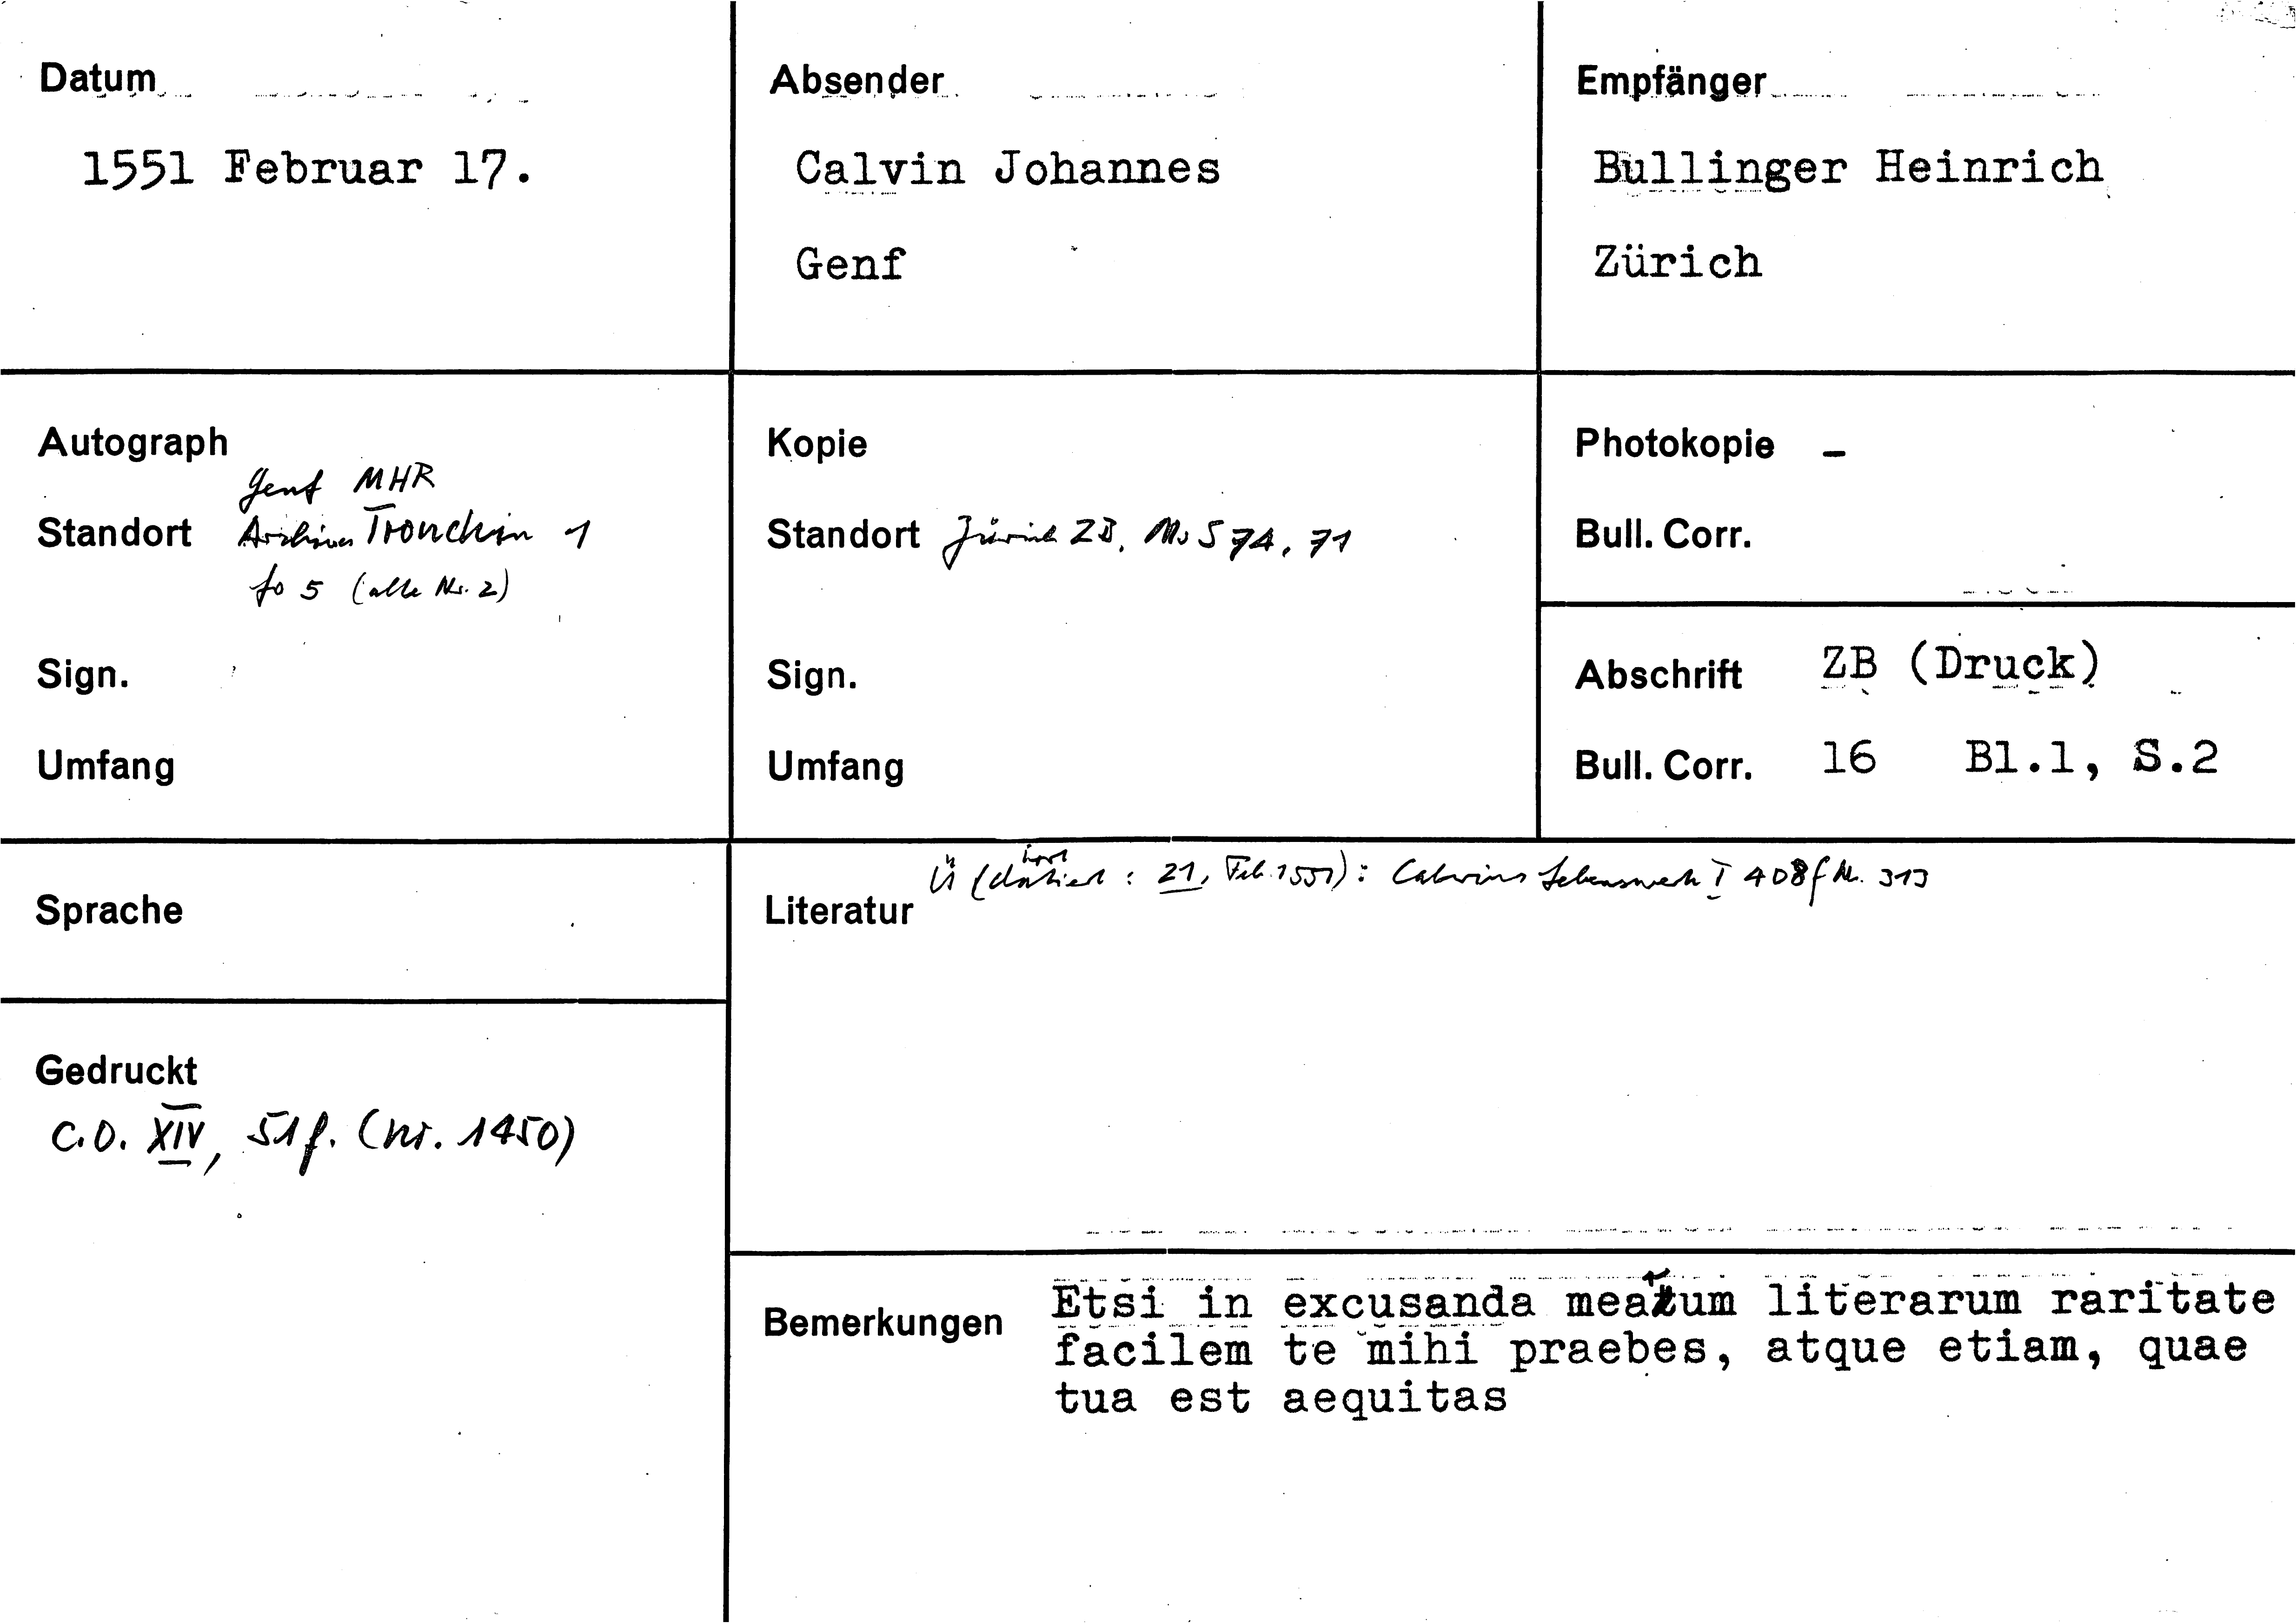 Datum
1551 Februar 17.
Absender
Calvin Johannes
Genf
Empfänger
Bullinger Heinrich
Zürich
Autograph
Genf MHR
Standort Archives Tronchin 1
fo 5 (alte Nr. 2)
Sign.
Umfang
Kopie
Standort Zürich ZB, Ms S 74, 71
Sign.
Umfang
Photokopie -
Bull. Corr.
Abschrift ZB (Druck)
Bull. Corr. 16 Bl.1, S.2
Sprache
Gedruckt
C.O. XIV, 51f. (Nr. 1450)
Literatur Ü (datiert: 21. Feb. 1551): Calvins Lebenswerk I 408f Nr. 313
Bemerkungen Etsi in excusanda mearum literarum raritate
facilem te mihi praebes, atque etiam, quae
tua est aequitas